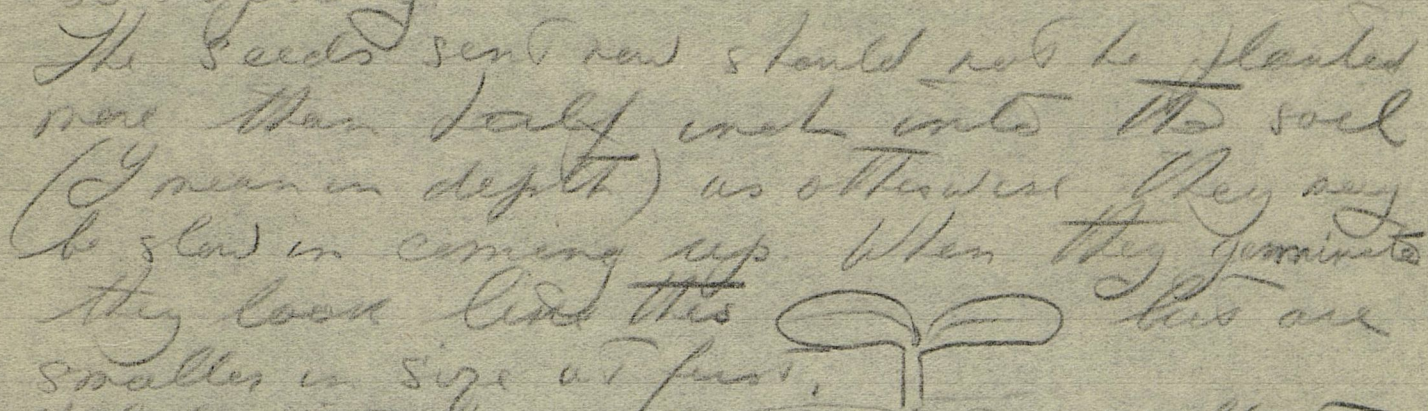 The seeds sent now should not be planted
more than half inch into the soil
(I mean in depth) as otherwise they may
be slow in coming up. When they germinate
they look like this but are
smaller in size at first.